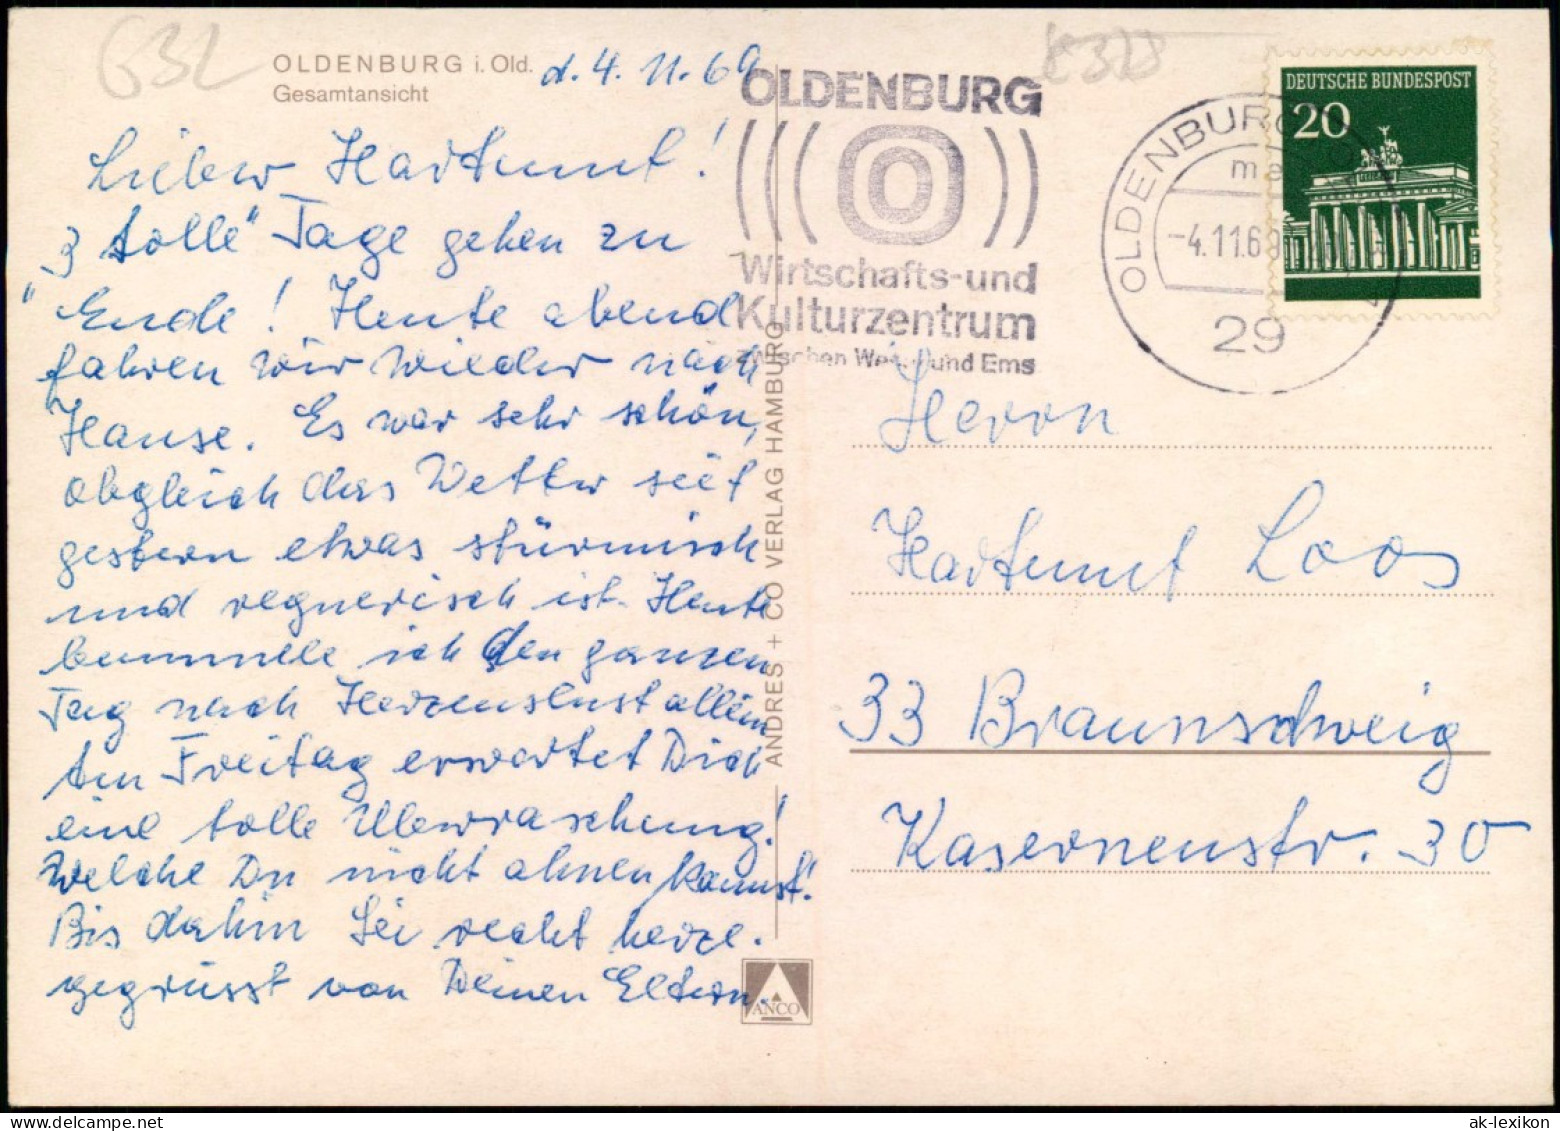 G32
8328
OLDENBURG i. Old.
Gesamtansicht
d. 4. 11. 69
Lieber Hartmut!
3 „tolle“ Tage gehen zu
Ende! Heute abend
fahren wir wieder nach
Hause. Es war sehr schön,
obgleich das Wetter seit
gestern etwas stürmisch
und regnerisch ist. Heute
bummele ich den ganzen
Tag nach Herzenslust allein
Am Freitag erwartet Dich
eine tolle Überraschung!
Welche Du nicht ahnen kannst!
Bis dahin sei recht herzl.
gegrüsst von Deinen Eltern.
ANDRES + CO VERLAG HAMBURG
ANCO
OLDENBURG
O
Wirtschafts-und
Kulturzentrum
zwischen Weser und Ems
OLDENBURG
-4.11.69
29
DEUTSCHE BUNDESPOST
20
Herrn
Hartmut Loos
33 Braunschweig
Kasernenstr. 30
ak-lexikon.com